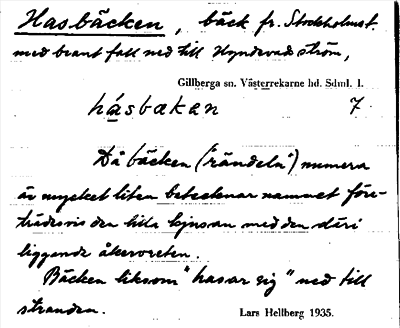 Hasbäcken, bäck fr. Stockholmst.
med brant fall ned till Hyndevad ström,
Gillberga sn. Västerrekarne hd. Sdml. l.
håsbækan 7.
Då bäcken ("rändeln") numera
är mycket liten betecknar namnet före-
trädesvis den lilla hjnsan med den däri
liggande åkervreten.
Bäcken liksom "hasar sig" ned till
stranden.
Lars Hellberg 1935.